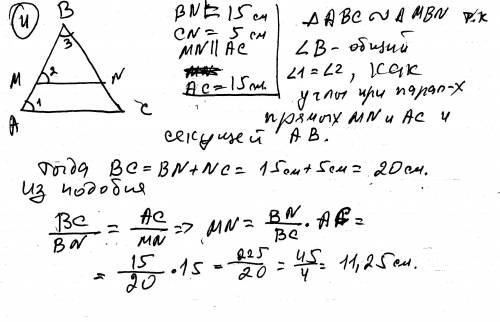 4
B
3
M 2 N
A 1 C
BN = 15 см
CN = 5 см
MN || AC
AC = 15 см.
△ABC ~ △MBN т.к
∠B - общий
∠1 = ∠2, как
углы при парал-х
прямых MN и AC и
секущей AB.
Тогда BC = BN + NC = 15 см + 5 см = 20 см.
Из подобия
BC/BN = AC/MN => MN = BN/BC · AC =
= 15/20 · 15 = 225/20 = 45/4 = 11,25 см.